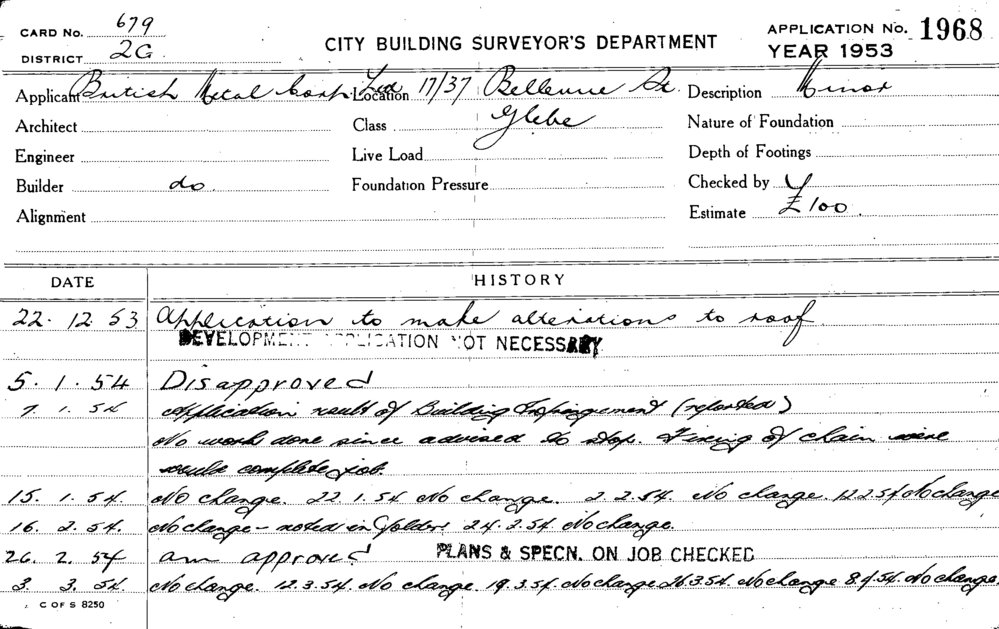 CARD No. 679
DISTRICT 2G
CITY BUILDING SURVEYOR'S DEPARTMENT
APPLICATION No. 1968
YEAR 1953
Applicant British Metal Corp. Ltd Location 17/37 Bellevue St. Description Minor
Architect Class Glebe Nature of Foundation
Engineer Live Load Depth of Footings
Builder do Foundation Pressure Checked by
Alignment Estimate £100.
DATE HISTORY
22. 12. 53 Application to make alterations to roof
DEVELOPMENT APPLICATION NOT NECESSARY
5. 1. 54 Disapproved
7. 1. 54 Application result of Building Infringement (reported)
No work done since advised to stop. Fixing of chain wire
would complete job.
15. 1. 54. No change. 22.1.54 No change. 2.2.54. No change. 12.2.54 No change
16. 2. 54. No change - noted in folder. 24.2.54 No change.
26. 2. 54 am approved PLANS & SPECN. ON JOB CHECKED
3. 3. 54. No change. 12.3.54. No change. 19.3.54. No change 26.3.54. No change 8.4.54. No change.
C OF S 8250